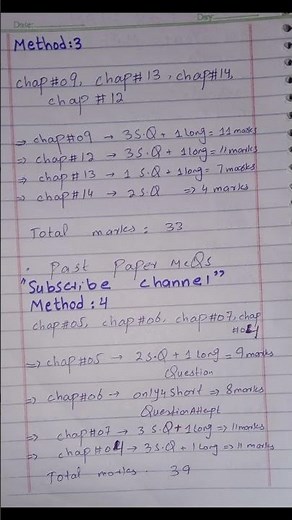 Day
Method:3
chap#09, chap#13, chap#14,
chap #12
⇒ chap#09 → 3S.Q + 1long = 11 marks
⇒ chap#12 → 3S.Q + 1long = 11 marks
⇒ chap#13 → 1 S.Q + 1long = 7 marks
⇒ chap#14 → 2 S.Q ⇒ 4 marks
Total marks : 33
· Past Paper McQs
"Subscribe channel"
Method : 4
chap#05, chap#06, chap#07, chap
#04
⇒ chap#05 → 2S.Q + 1 Long = 9 marks
Question
⇒ chap#06 → only 4 short ⇒ 8 marks
Question Attept
⇒ chap#07 → 3 S.Q + 1 Long ⇒ 11 marks
⇒ chap#04 → 3S.Q + 1 Long ⇒ 11 marks
Total marks 39